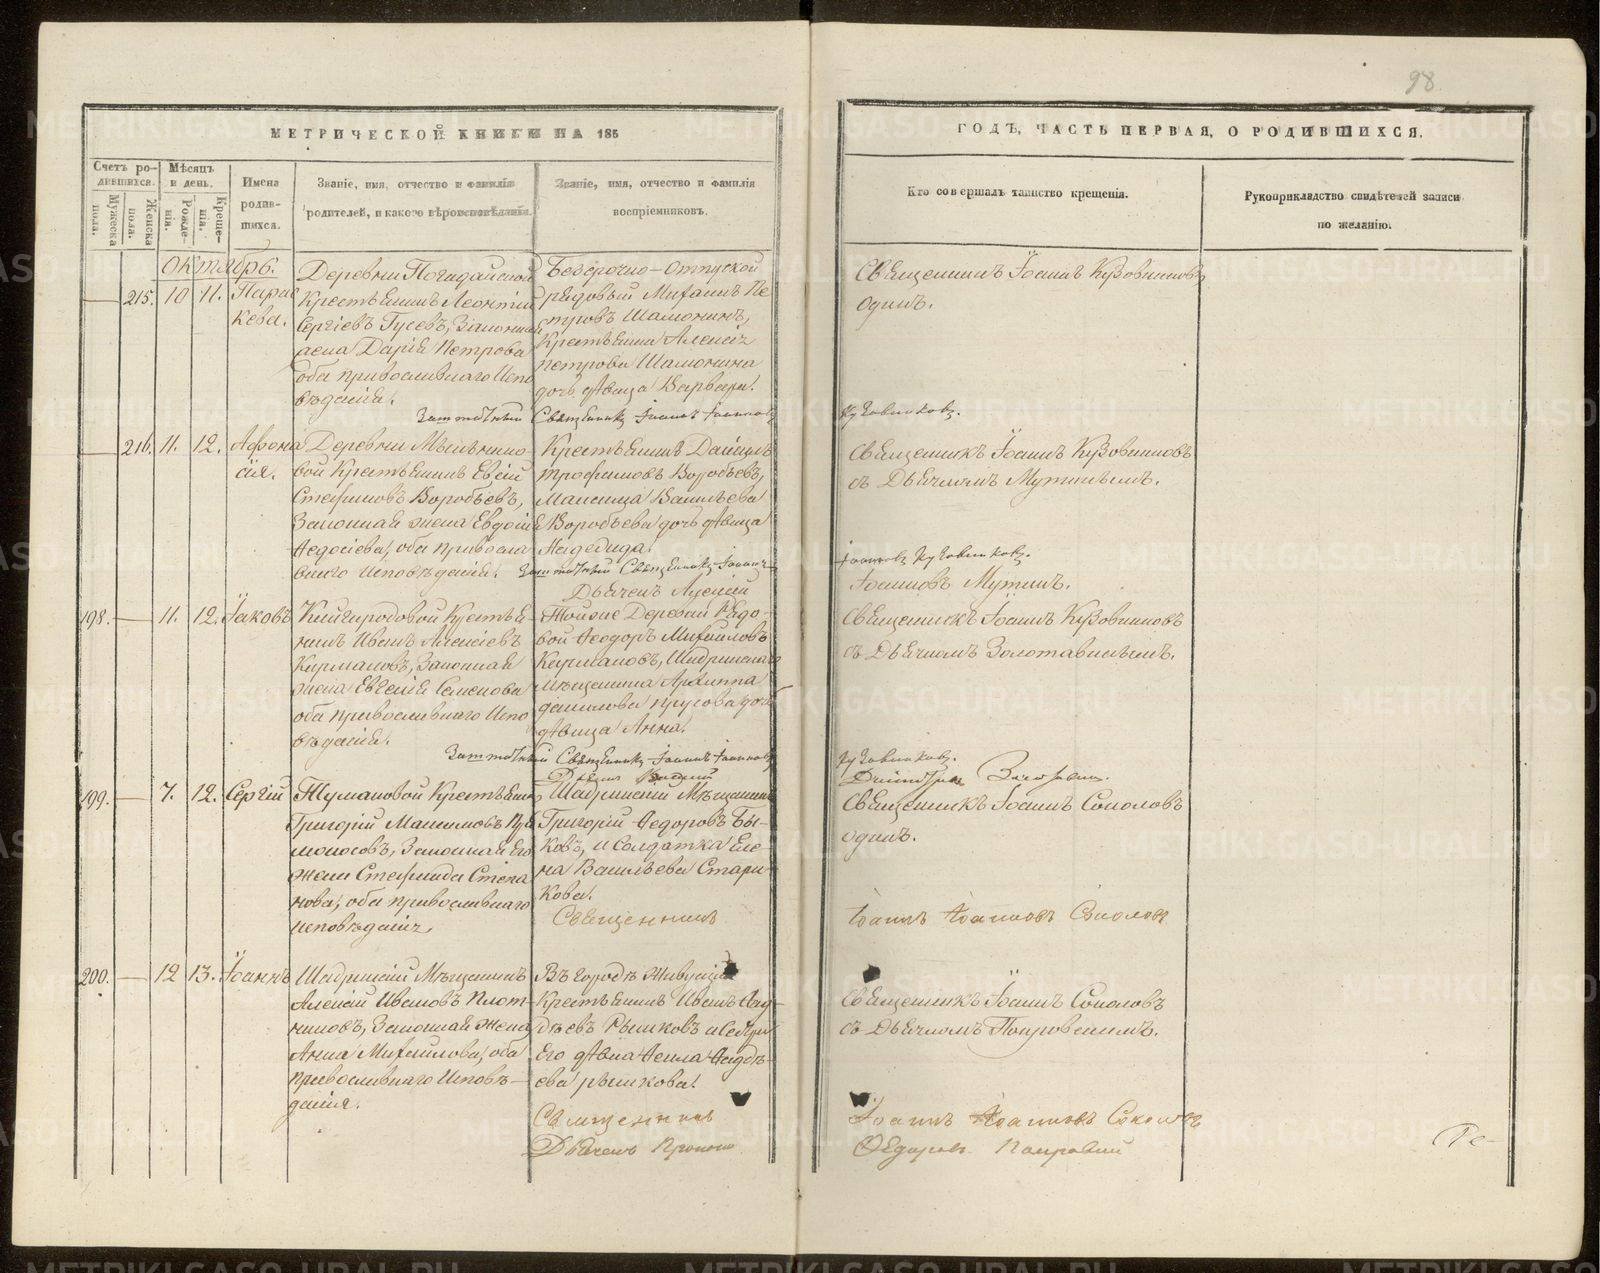 98
МЕТРИЧЕСКОЙ КНИГИ НА 185
ГОДЪ, ЧАСТЬ ПЕРВАЯ, О РОДИВШИХСЯ.
Счетъ ро-
дившихся.
Мужеска
пола.
Женска
пола.
Мѣсяцъ
и день.
Рожде-
нія.
Креще-
нія.
Имена
родив-
шихся.
Званіе, имя, отчество и фамилія
родителей, и какого вѣроисповѣданія.
Званіе, имя, отчество и фамилія
воспріемниковъ.
Кто совершалъ таинство крещенія.
Рукоприкладство свидѣтелей записи
по желанію.
Октябрь.
215. 10 11. Парас
кева.
Деревни Погадайской
Крестьянинъ Леонтій
Сергіевъ Гусевъ, Законная
жена Дарія Петрова
оба православнаго Испо
вѣданія.
Безсрочно-Отпуской
рядовый Михаилъ Пе
тровъ Шамонинъ,
Крестьянина Алексія
Петрова Шамонина
дочь дѣвица Варвара.
Священникъ Іоаннъ Кузовниковъ
одинъ.
Священникъ Іоаннъ Іоанновъ
Кузовниковъ.
216. 11. 12. Афана
сія.
вой Крестьянинъ
Стефановъ Воробьевъ,
Законная жена Евдокія
Федосіева, оба правосла
внаго Исповѣданія.
Крестьянинъ Даніилъ
Трофимовъ Воробьевъ,
Васильева
Воробьева дочь дѣвица
Надежда.
Священникъ Іоаннъ Кузовниковъ
съ Дьячкомъ
Священникъ Іоаннъ
Іоанновъ Кузовниковъ.
Дьячекъ Алексій
Іоанновъ
198. 11. 12. Іаковъ
Крестья
нинъ Иванъ Алексіевъ
Курмановъ, Законная
жена Евгенія Семенова
оба православнаго Испо
вѣданія.
Тойже Деревни Рядо
вой Феодоръ Михайловъ
Курмановъ, Шадринскаго
мѣщанина Архиппа
Данилова Прусова дочь
дѣвица Анна.
Священникъ Іоаннъ Кузовниковъ
съ Дьячкомъ Золотавинымъ.
Священникъ Іоаннъ Іоанновъ
Кузовниковъ.
199. 7. 12. Сергій
Тумановой Крестьянинъ
Григорій Максимовъ
Законная Его
жена Стефанида Степа
нова, оба православнаго
исповѣданія,
Шадринскій Мѣщанинъ
Григорій Федоровъ Бы-
ковъ, и Солдатка Еле-
на Васильева Стари-
кова.
Священникъ Іоаннъ Соколовъ
одинъ.
Священникъ
Іоаннъ Іоанновъ Соколовъ
200. 12 13. Іоаннъ
Шадринскій Мѣщанинъ
Алексій Ивановъ Плот-
никовъ, Законная жена
Анна Михайлова, оба
православнаго Исповѣ-
данія.
Въ городѣ живущій
Крестьянинъ Иванъ Анд-
реевъ Рышковъ и Сестра
Его дѣвица Фекла Андре-
ева Рышкова.
Священникъ Іоаннъ Соколовъ
съ Дьячкомъ Покровскимъ.
Священникъ
Іоаннъ Іоанновъ Соколовъ
Дьячекъ
Федоровъ Покровскій